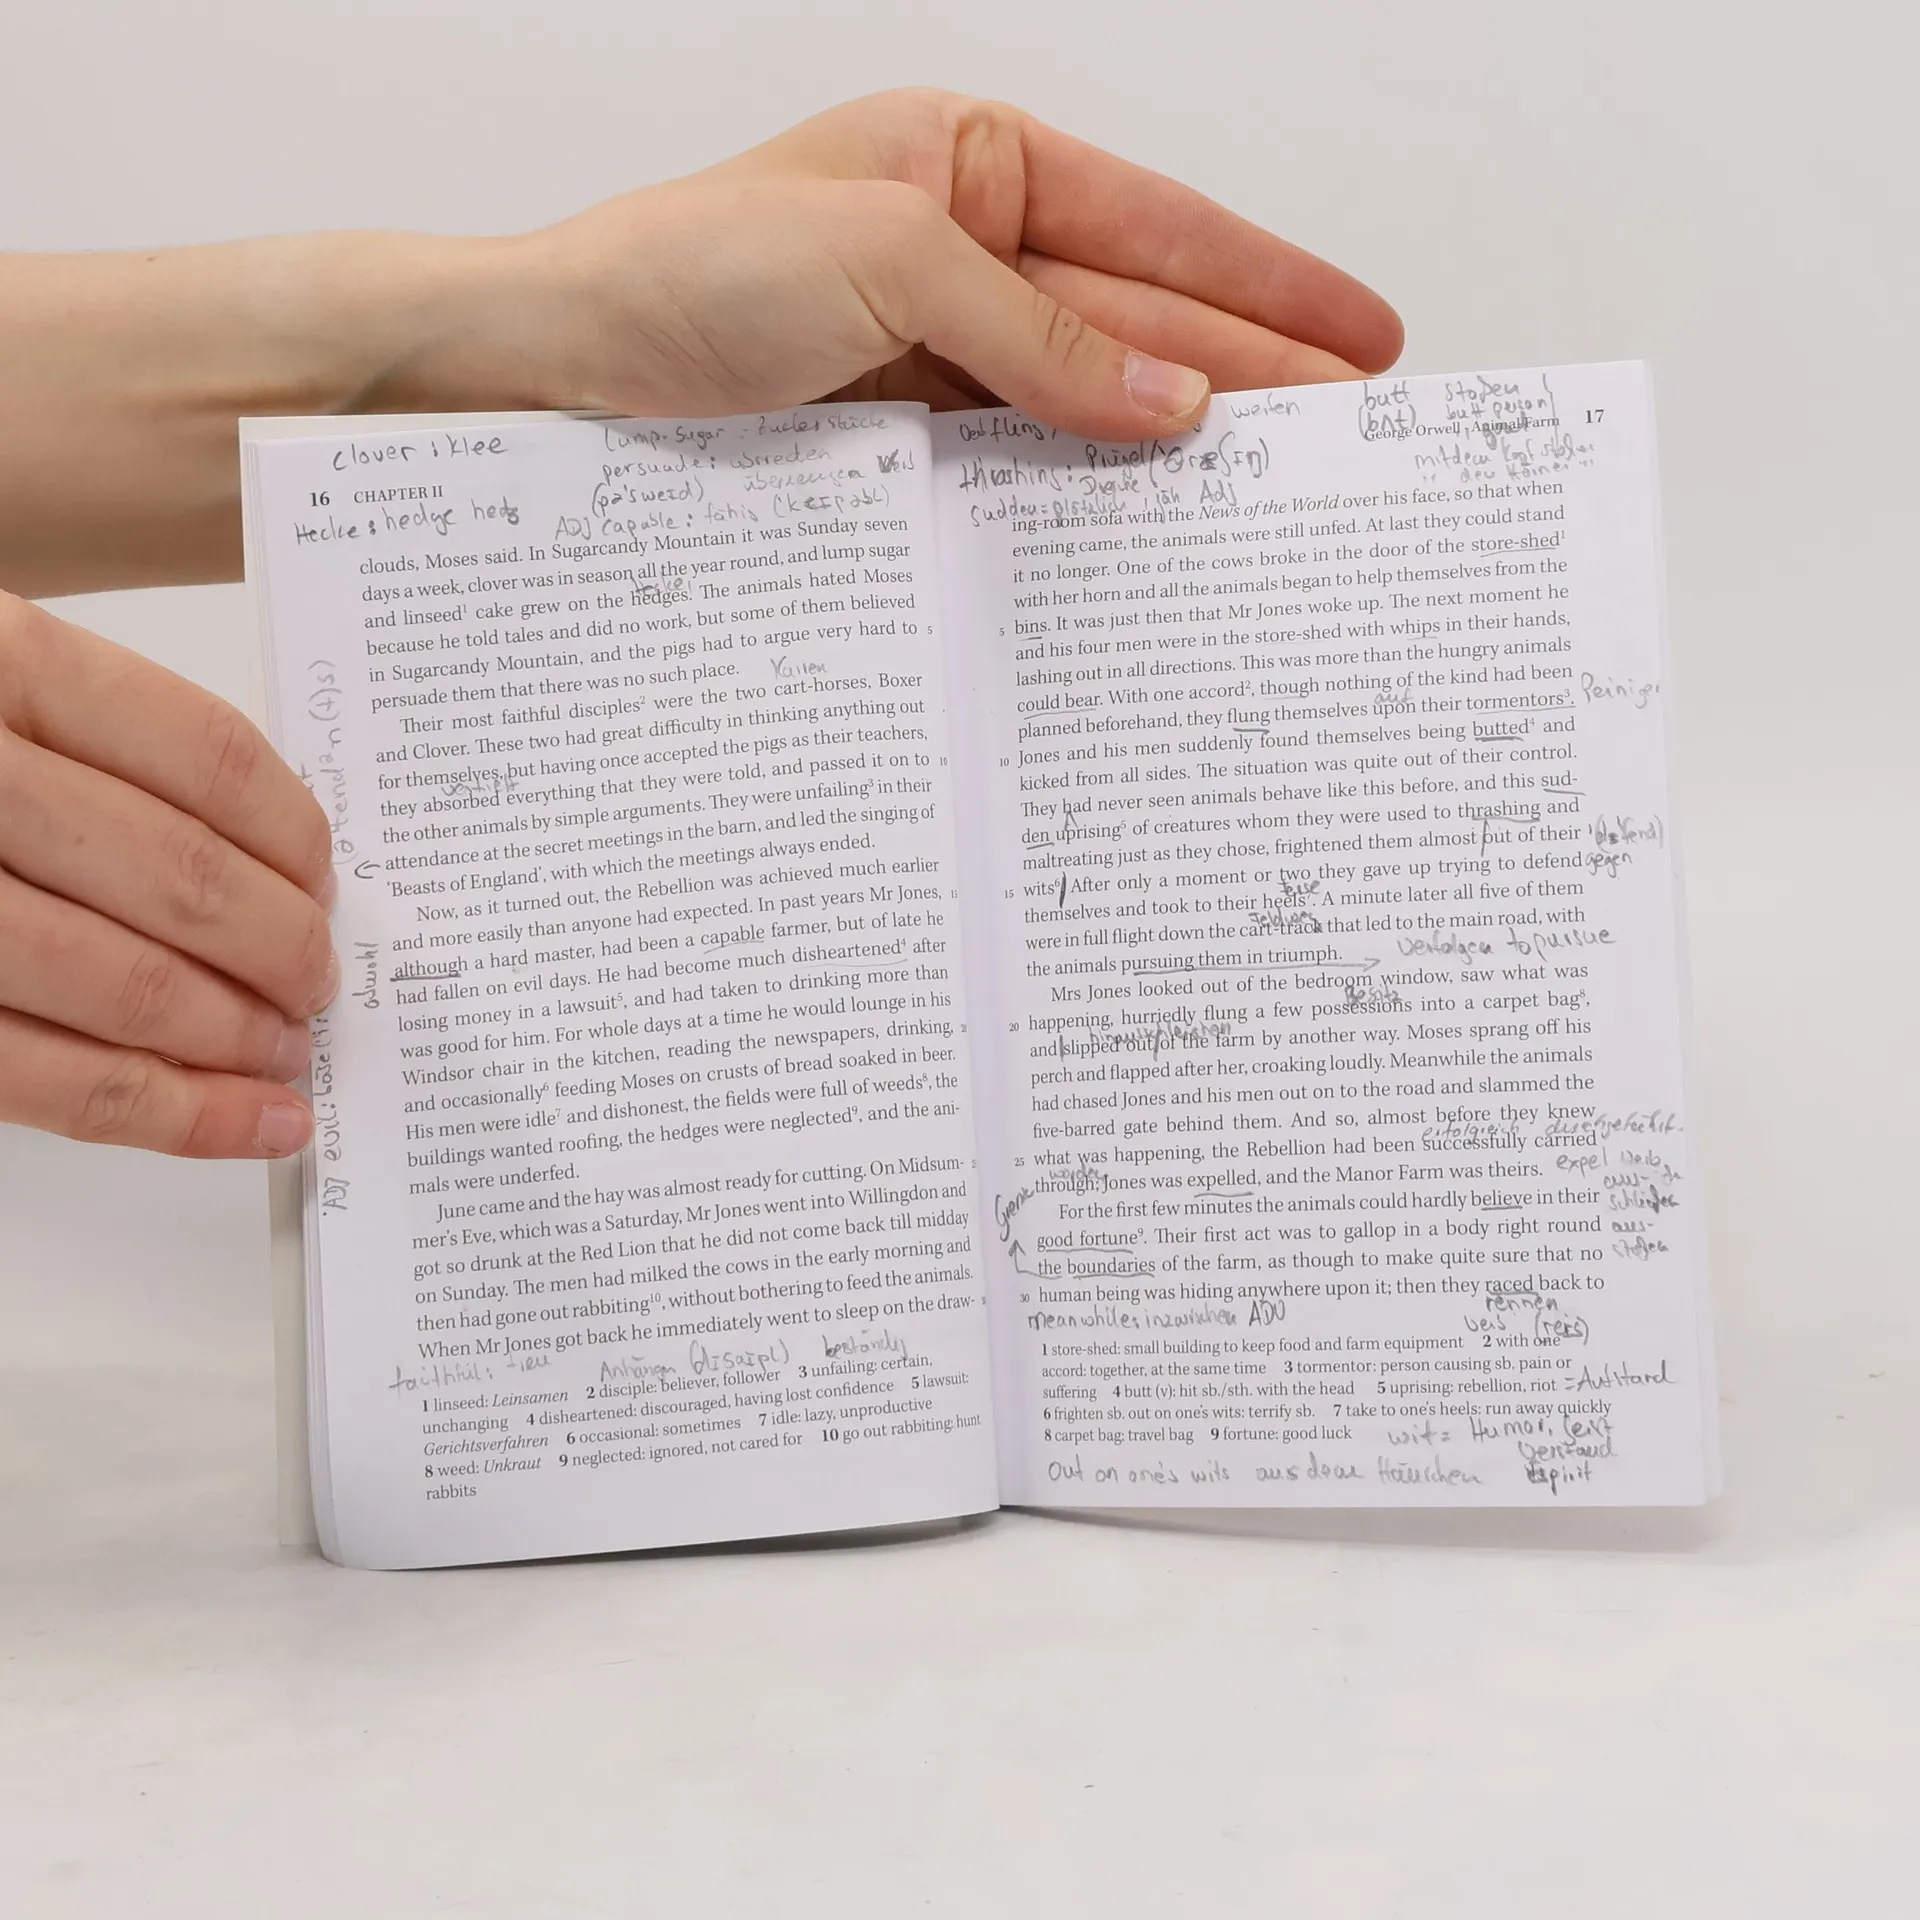 clover : klee
Lump-Sugar : Zuckerstücke
persuade : überreden
überzeugen
16 CHAPTER II
Hecke : hedge
ADJ capable : fähig
clouds, Moses said. In Sugarcandy Mountain it was Sunday seven
days a week, clover was in season all the year round, and lump sugar
Hecke
and linseed¹ cake grew on the hedges. The animals hated Moses
because he told tales and did no work, but some of them believed
in Sugarcandy Mountain, and the pigs had to argue very hard to 5
persuade them that there was no such place.
Karren
Their most faithful disciples² were the two cart-horses, Boxer
and Clover. These two had great difficulty in thinking anything out
for themselves, but having once accepted the pigs as their teachers,
they absorbed everything that they were told, and passed it on to 10
the other animals by simple arguments. They were unfailing³ in their
attendance at the secret meetings in the barn, and led the singing of
‘Beasts of England’, with which the meetings always ended.
Now, as it turned out, the Rebellion was achieved much earlier
and more easily than anyone had expected. In past years Mr Jones, 15
although a hard master, had been a capable farmer, but of late he
had fallen on evil days. He had become much disheartened⁴ after
losing money in a lawsuit⁵, and had taken to drinking more than
was good for him. For whole days at a time he would lounge in his
Windsor chair in the kitchen, reading the newspapers, drinking,
and occasionally⁶ feeding Moses on crusts of bread soaked in beer.
His men were idle⁷ and dishonest, the fields were full of weeds⁸, the
buildings wanted roofing, the hedges were neglected⁹, and the ani-
mals were underfed.
June came and the hay was almost ready for cutting. On Midsum-
mer’s Eve, which was a Saturday, Mr Jones went into Willingdon and
got so drunk at the Red Lion that he did not come back till midday
on Sunday. The men had milked the cows in the early morning and
then had gone out rabbiting¹⁰, without bothering to feed the animals.
When Mr Jones got back he immediately went to sleep on the draw-
faithful : treu
beständig
1 linseed: Leinsamen 2 disciple: believer, follower 3 unfailing: certain,
unchanging 4 disheartened: discouraged, having lost confidence 5 lawsuit:
Gerichtsverfahren 6 occasional: sometimes 7 idle: lazy, unproductive
8 weed: Unkraut 9 neglected: ignored, not cared for 10 go out rabbiting: hunt
rabbits
obwohl
ADJ evil : böse
werfen
butt stoßen
butt person
George Orwell · Animal Farm 17
thrashing : Prügel
sudden = plötzlich, jäh Adj
ing-room sofa with the News of the World over his face, so that when
evening came, the animals were still unfed. At last they could stand
it no longer. One of the cows broke in the door of the store-shed¹
with her horn and all the animals began to help themselves from the
5 bins. It was just then that Mr Jones woke up. The next moment he
and his four men were in the store-shed with whips in their hands,
lashing out in all directions. This was more than the hungry animals
could bear. With one accord², though nothing of the kind had been
auf
planned beforehand, they flung themselves upon their tormentors³. Peiniger
10 Jones and his men suddenly found themselves being butted⁴ and
kicked from all sides. The situation was quite out of their control.
They had never seen animals behave like this before, and this sud-
den uprising⁵ of creatures whom they were used to thrashing and
maltreating just as they chose, frightened them almost out of their
15 wits⁶. After only a moment or two they gave up trying to defend gegen
Ferse
themselves and took to their heels⁷. A minute later all five of them
Feldweg
were in full flight down the cart-track that led to the main road, with
the animals pursuing them in triumph. verfolgen to pursue
Mrs Jones looked out of the bedroom window, saw what was
Besitz
20 happening, hurriedly flung a few possessions into a carpet bag⁸,
hinausschleichen
and slipped out of the farm by another way. Moses sprang off his
perch and flapped after her, croaking loudly. Meanwhile the animals
had chased Jones and his men out on to the road and slammed the
five-barred gate behind them. And so, almost before they knew
erfolgreich
25 what was happening, the Rebellion had been successfully carried
worden
through; Jones was expelled, and the Manor Farm was theirs. expel
For the first few minutes the animals could hardly believe in their
good fortune⁹. Their first act was to gallop in a body right round
the boundaries of the farm, as though to make quite sure that no
30 human being was hiding anywhere upon it; then they raced back to
rennen
meanwhile : inzwischen ADV
1 store-shed: small building to keep food and farm equipment 2 with one
accord: together, at the same time 3 tormentor: person causing sb. pain or
suffering 4 butt (v): hit sb./sth. with the head 5 uprising: rebellion, riot = Aufstand
6 frighten sb. out on one’s wits: terrify sb. 7 take to one’s heels: run away quickly
8 carpet bag: travel bag 9 fortune: good luck
wit = Humor, Geist
Verstand
Out on one's wits aus dem Häuschen